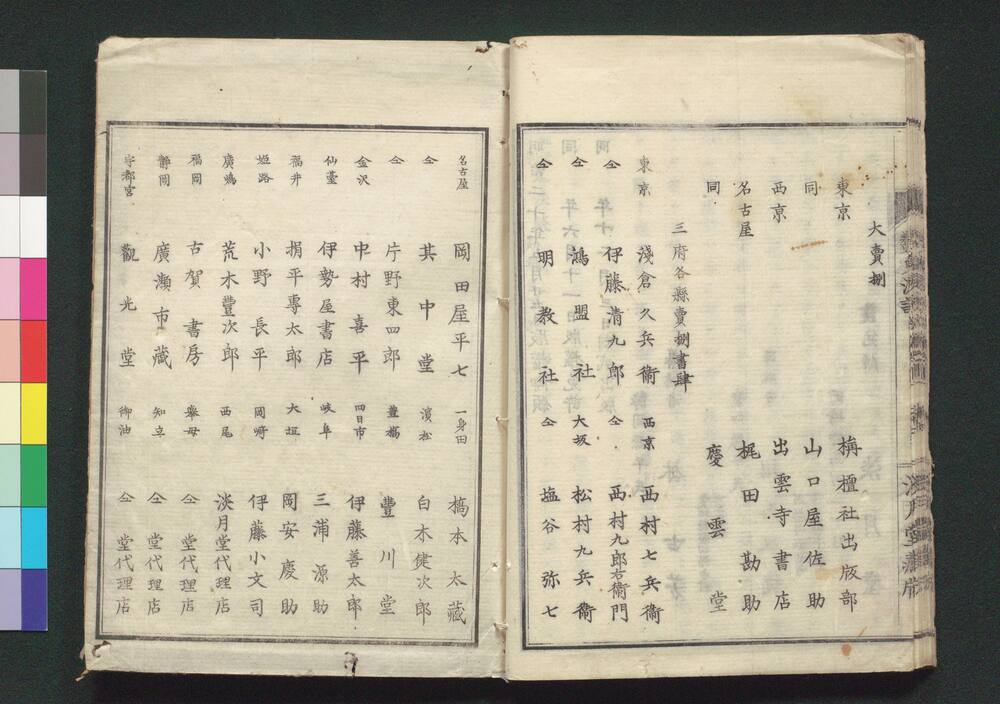 大賣捌
東京 栴檀社出版部
同 山口屋佐助
西京 出雲寺書店
名古屋 梶田勘助
同 慶雲堂
三府各縣賣捌書肆
東京 淺倉久兵衛 西京 西村七兵衛
仝 伊藤清九郎 仝 西村九郎右衛門
仝 鴻盟社 大坂 松村九兵衛
仝 明教社 仝 塩谷弥七
名古屋 岡田屋平七 一身田 槁本太藏
仝 其中堂 濱松 白木健次郎
仝 片野東四郎 豊橋 豊川堂
金沢 中村喜平 四日市 伊藤善太郎
仙臺 伊勢屋書店 岐阜 三浦源助
福井 捐平專太郎 大垣 岡安慶助
姫路 小野長平 岡崎 伊藤小文司
廣嶋 荒木豊次郎 西尾 淡月堂代理店
福岡 古賀書房 擧母 仝堂代理店
靜岡 廣瀬市藏 知立 仝堂代理店
宇都宮 觀光堂 御油 仝堂代理店